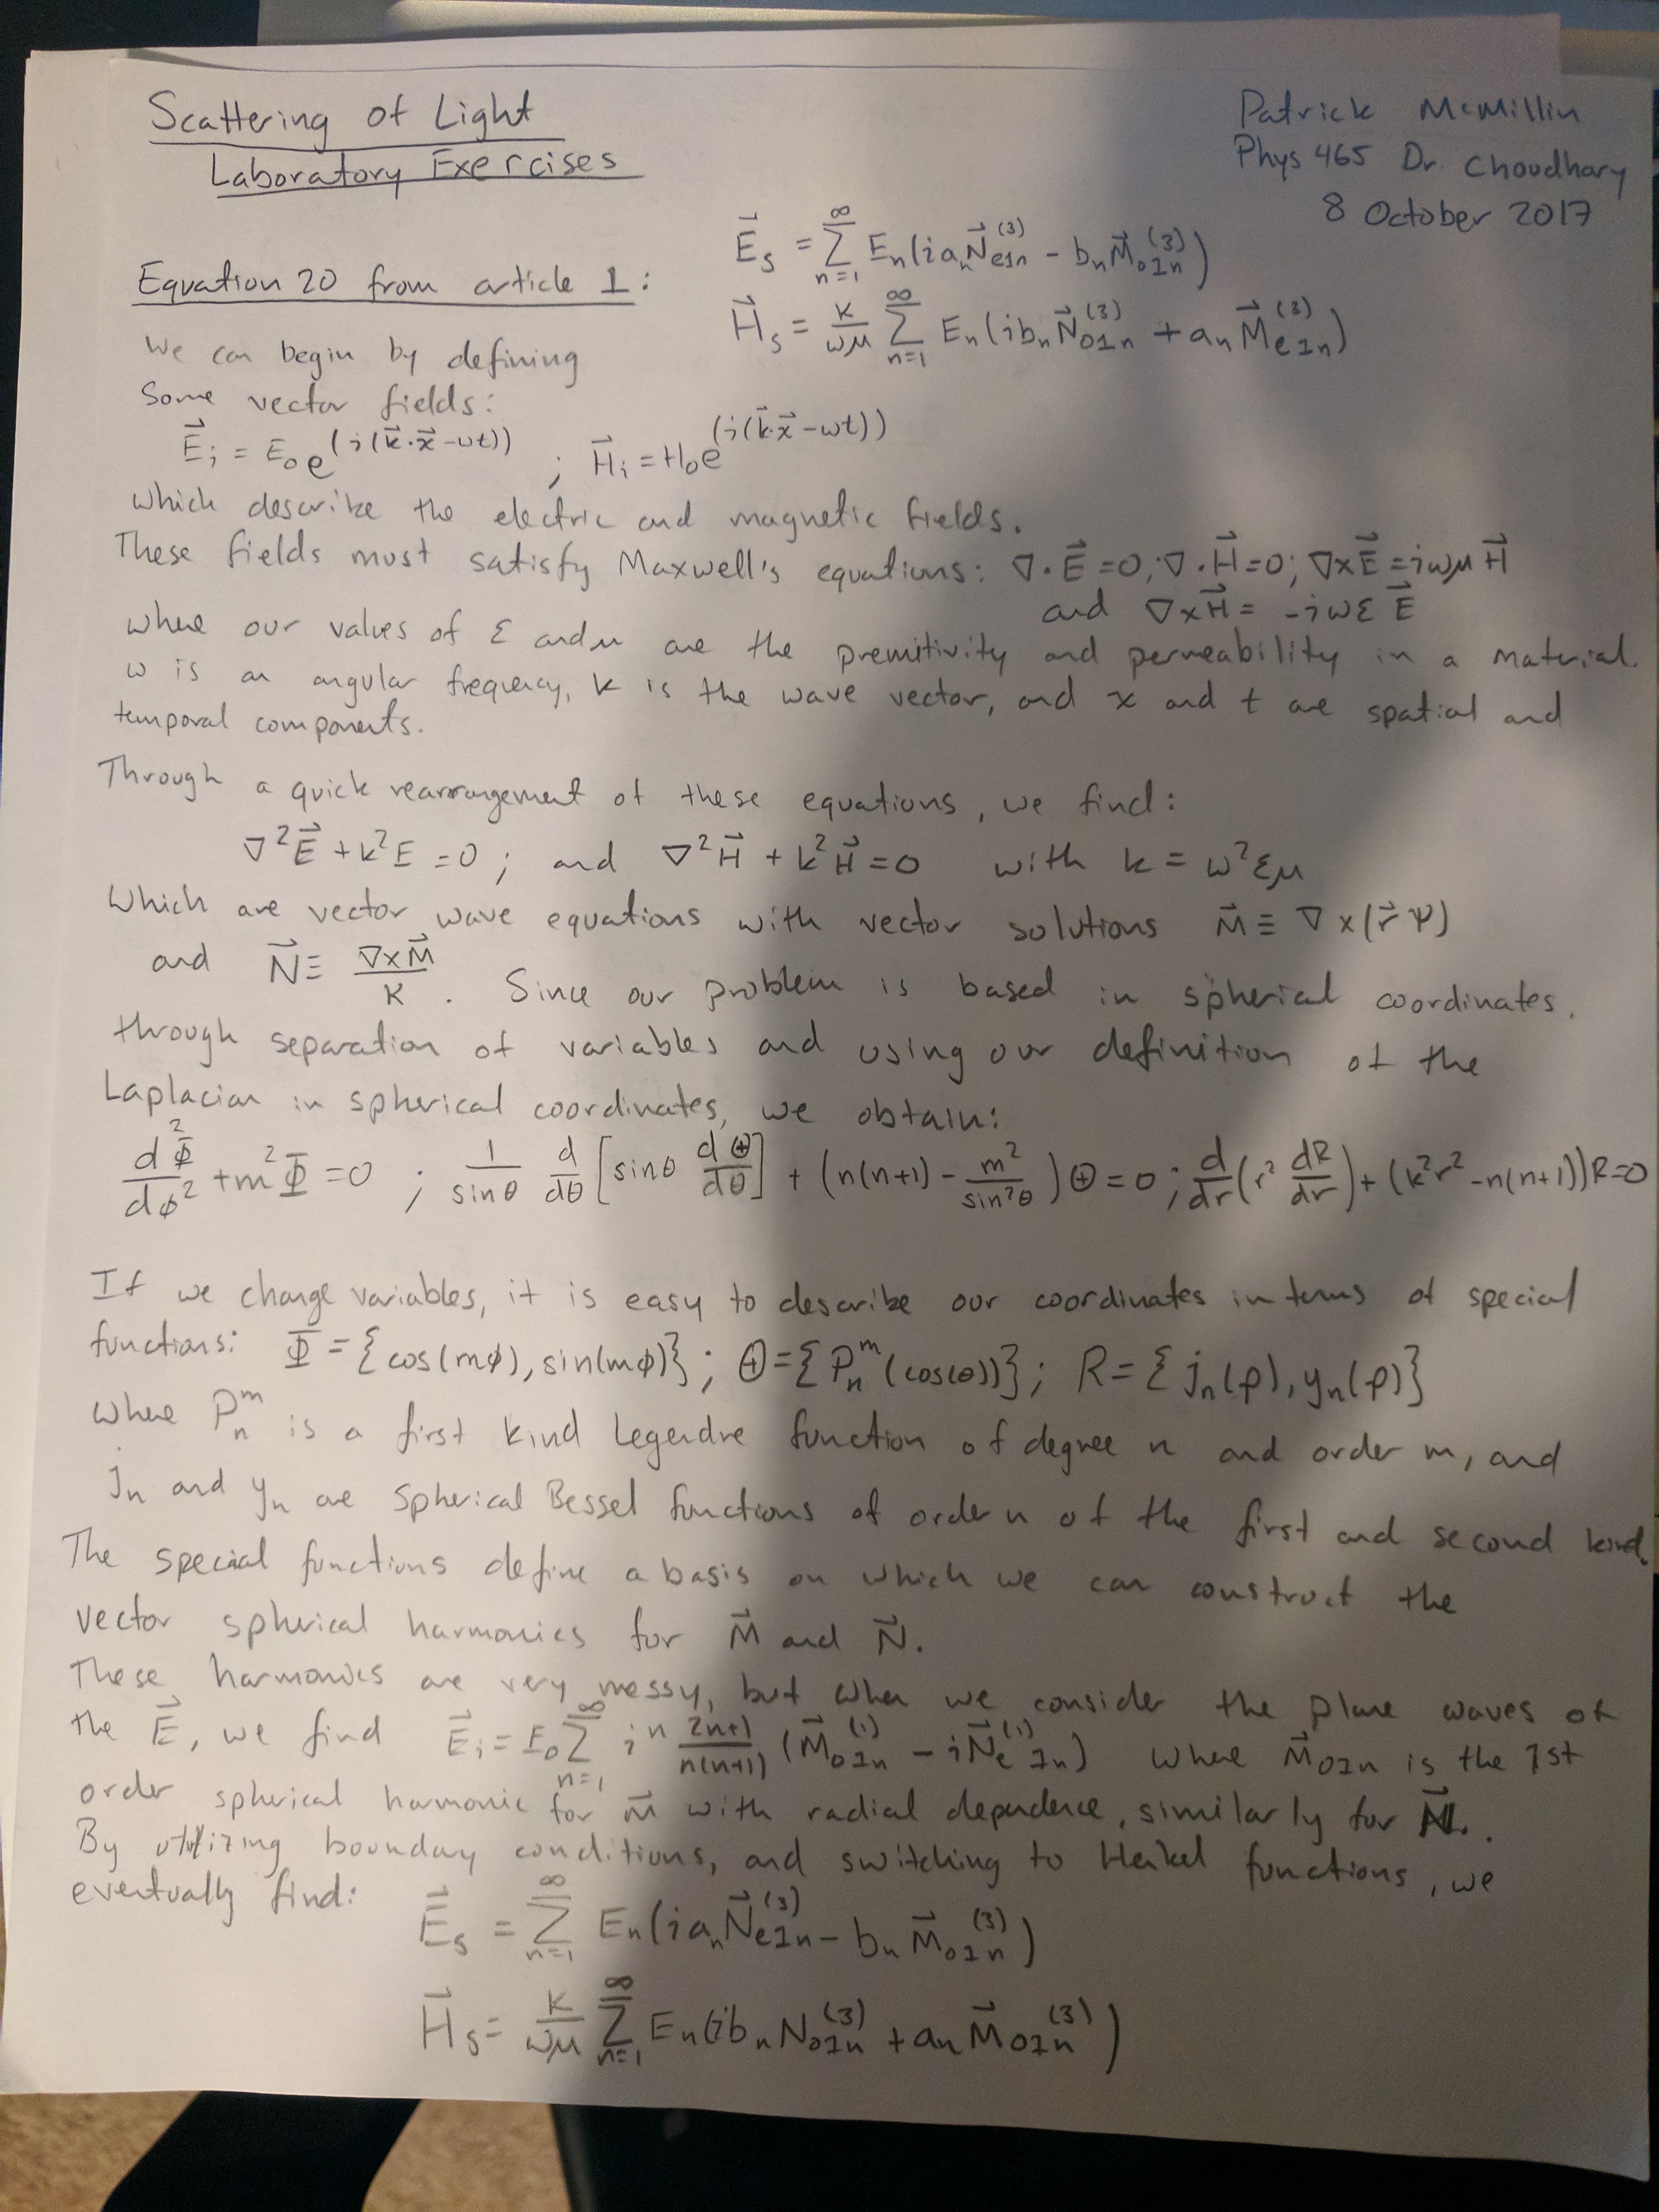 Scattering of Light
Laboratory Exercises
Patrick McMillin
Phys 465 Dr. Choudhary
8 October 2017
Equation 20 from article 1:
E⃗_s = Σ_{n=1}^{∞} E_n(ia_n N⃗_{e1n}^{(3)} - b_n M⃗_{o1n}^{(3)})
H⃗_s = k/ωμ Σ_{n=1}^{∞} E_n(ib_n N⃗_{o1n}^{(3)} + a_n M⃗_{e1n}^{(3)})
We can begin by defining
some vector fields:
E⃗_i = E_0 e^{(i(k⃗·x⃗-ωt))} ; H⃗_i = H_0 e^{(i(k⃗·x⃗-ωt))}
which describe the electric and magnetic fields.
These fields must satisfy Maxwell's equations: ∇·E⃗=0; ∇·H⃗=0; ∇×E⃗=iωμH⃗
and ∇×H⃗ = -iωεE⃗
where our values of ε and μ are the premitivity and permeability in a material.
ω is an angular frequency, k is the wave vector, and x and t are spatial and
temporal components.
Through a quick rearrangement of these equations, we find:
∇²E⃗ + k²E = 0 ; and ∇²H⃗ + k²H⃗ = 0 with k = ω²εμ
Which are vector wave equations with vector solutions M⃗ ≡ ∇×(r⃗ψ)
and N⃗ ≡ ∇×M⃗/k . Since our problem is based in spherical coordinates,
through separation of variables and using our definition of the
Laplacian in spherical coordinates, we obtain:
d²Φ/dφ² + m²Φ = 0 ; 1/sinθ d/dθ [sinθ dΘ/dθ] + (n(n+1) - m²/sin²θ)Θ = 0 ; d/dr(r² dR/dr) + (k²r² - n(n+1))R=0
If we change variables, it is easy to describe our coordinates in terms of special
functions: Φ = {cos(mφ), sin(mφ)}; Θ = {P_n^m(cos(θ))}; R = {j_n(ρ), y_n(ρ)}
where P_n^m is a first kind Legendre function of degree n and order m, and
j_n and y_n are Spherical Bessel functions of order n of the first and second kind.
The special functions define a basis on which we can construct the
vector spherical harmonics for M⃗ and N⃗.
These harmonics are very messy, but when we consider the plane waves of
the E⃗, we find E⃗_i = E_0 Σ_{n=1}^{∞} i^n 2n+1/n(n+1) (M⃗_{o1n}^{(1)} - iN⃗_{e1n}^{(1)}) where M⃗_{o1n} is the 1st
order spherical harmonic for M⃗ with radial dependence, similarly for N⃗.
By utilizing boundary conditions, and switching to Hankel functions, we
eventually find:
E⃗_s = Σ_{n=1}^{∞} E_n(ia_n N⃗_{e1n}^{(3)} - b_n M⃗_{o1n}^{(3)})
H⃗_s = k/ωμ Σ_{n=1}^{∞} E_n(ib_n N_{o1n}^{(3)} + a_n M⃗_{o1n}^{(3)})